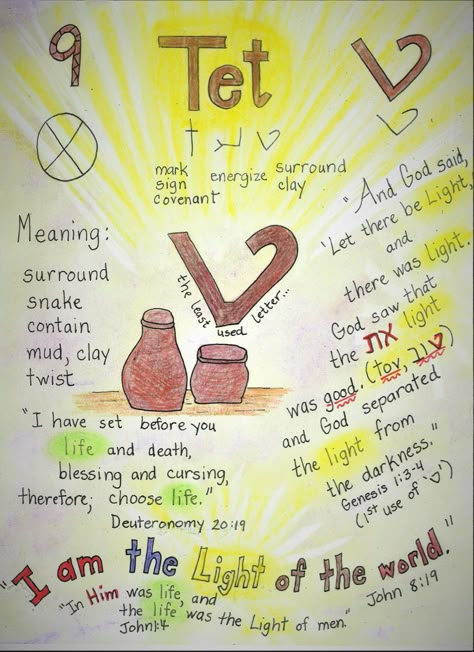 9 Tet ט
mark energize surround
sign clay
covenant
Meaning:
surround
snake
contain
mud, clay
twist
the least used letter...
"And God said,
'Let there be Light,'
and
there was light.
God saw that
the את light
was good. (tov, טוב)
and God separated
the light from
the darkness."
Genesis 1:3-4
(1st use of 'ט')
"I have set before you
life and death,
blessing and cursing,
therefore; choose life."
Deuteronomy 20:19
"I am the Light of the world."
John 8:19
"In Him was life, and
the life was the Light of men."
John 1:4